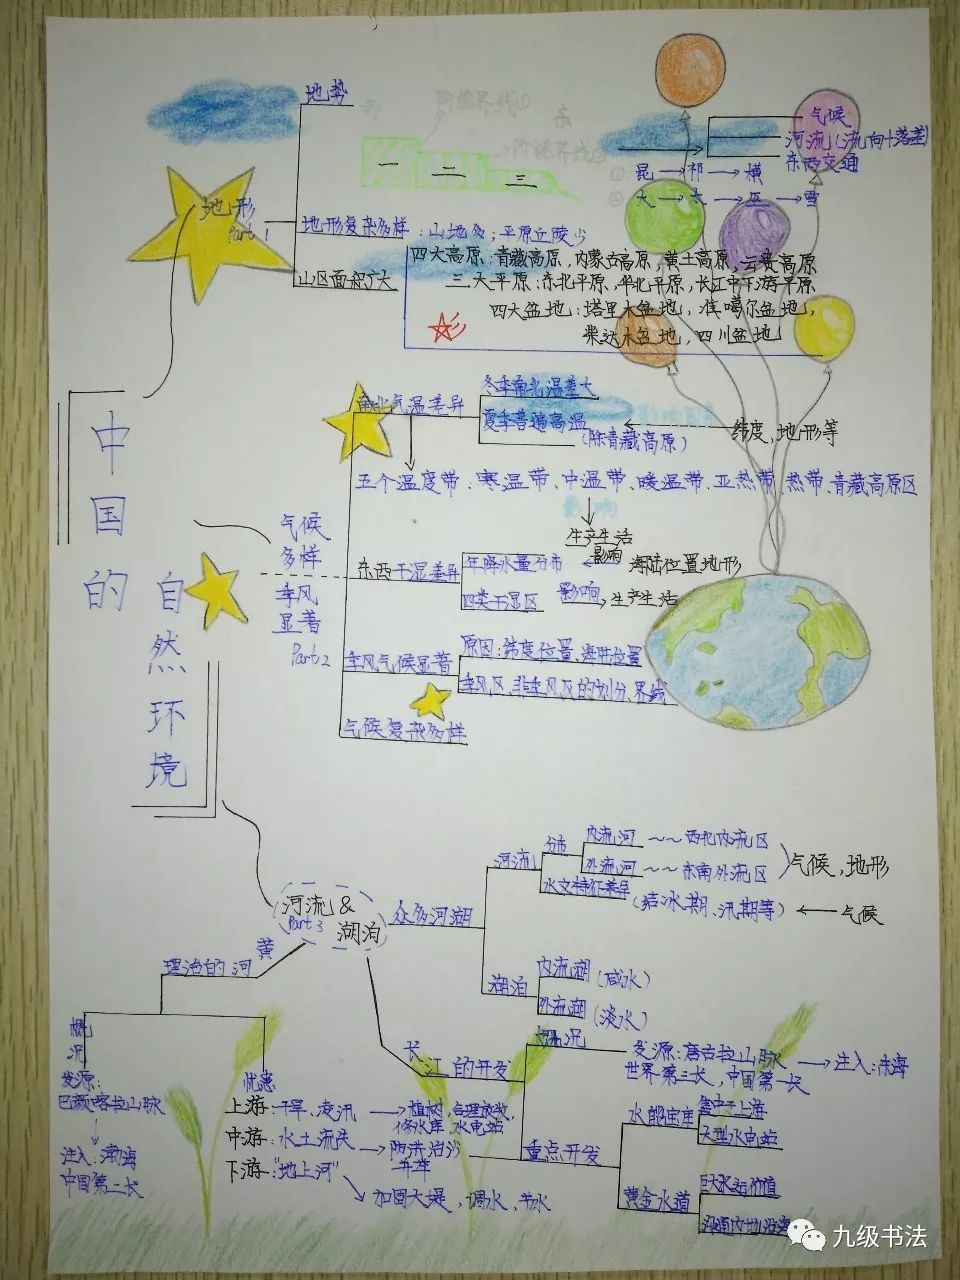 中国的
自然环境
地形
Part 1
地势
一 二 三
气候
河流(流向+落差)
东西交通
昆→祁→横
大→太→巫→雪
地形复杂多样:山地多;平原丘陵少
山区面积广大
四大高原:青藏高原,内蒙古高原,黄土高原,云贵高原
三大平原:东北平原,华北平原,长江中下游平原
四大盆地:塔里木盆地,准噶尔盆地,
柴达木盆地,四川盆地
气候
多样
季风
显著
Part 2
南北气温差异
冬季南北温差大
夏季普遍高温
(除青藏高原)
纬度,地形等
五个温度带:寒温带、中温带、暖温带、亚热带、热带、青藏高原区
影响
生产生活
东西干湿差异
年降水量分布
影响
海陆位置地形
四类干湿区
影响
生产生活
季风气候显著
原因:纬度位置、海陆位置
季风区、非季风区的划分、界线
气候复杂多样
河流&
Part 3
湖泊
众多河湖
河流
分布
内流河~~西北内流区
外流河~~东南外流区
气候,地形
水文特征差异
(结冰期、汛期等)←气候
湖泊
内流湖(咸水)
外流湖(淡水)
黄
河
理治的
概况
发源:
巴颜喀拉山脉
注入:渤海
中国第二长
忧患
上游:干旱、凌汛→植树,合理放牧,
修水库,水电站
中游:水土流失→防洪治沙
下游:"地上河"
加固大堤,调水,节水
长江的开发
概况
发源:唐古拉山脉→注入:东海
世界第三长,中国第一长
重点开发
水能宝库
集中于上游
大型水电站
黄金水道
巨大水运价值
九级书法